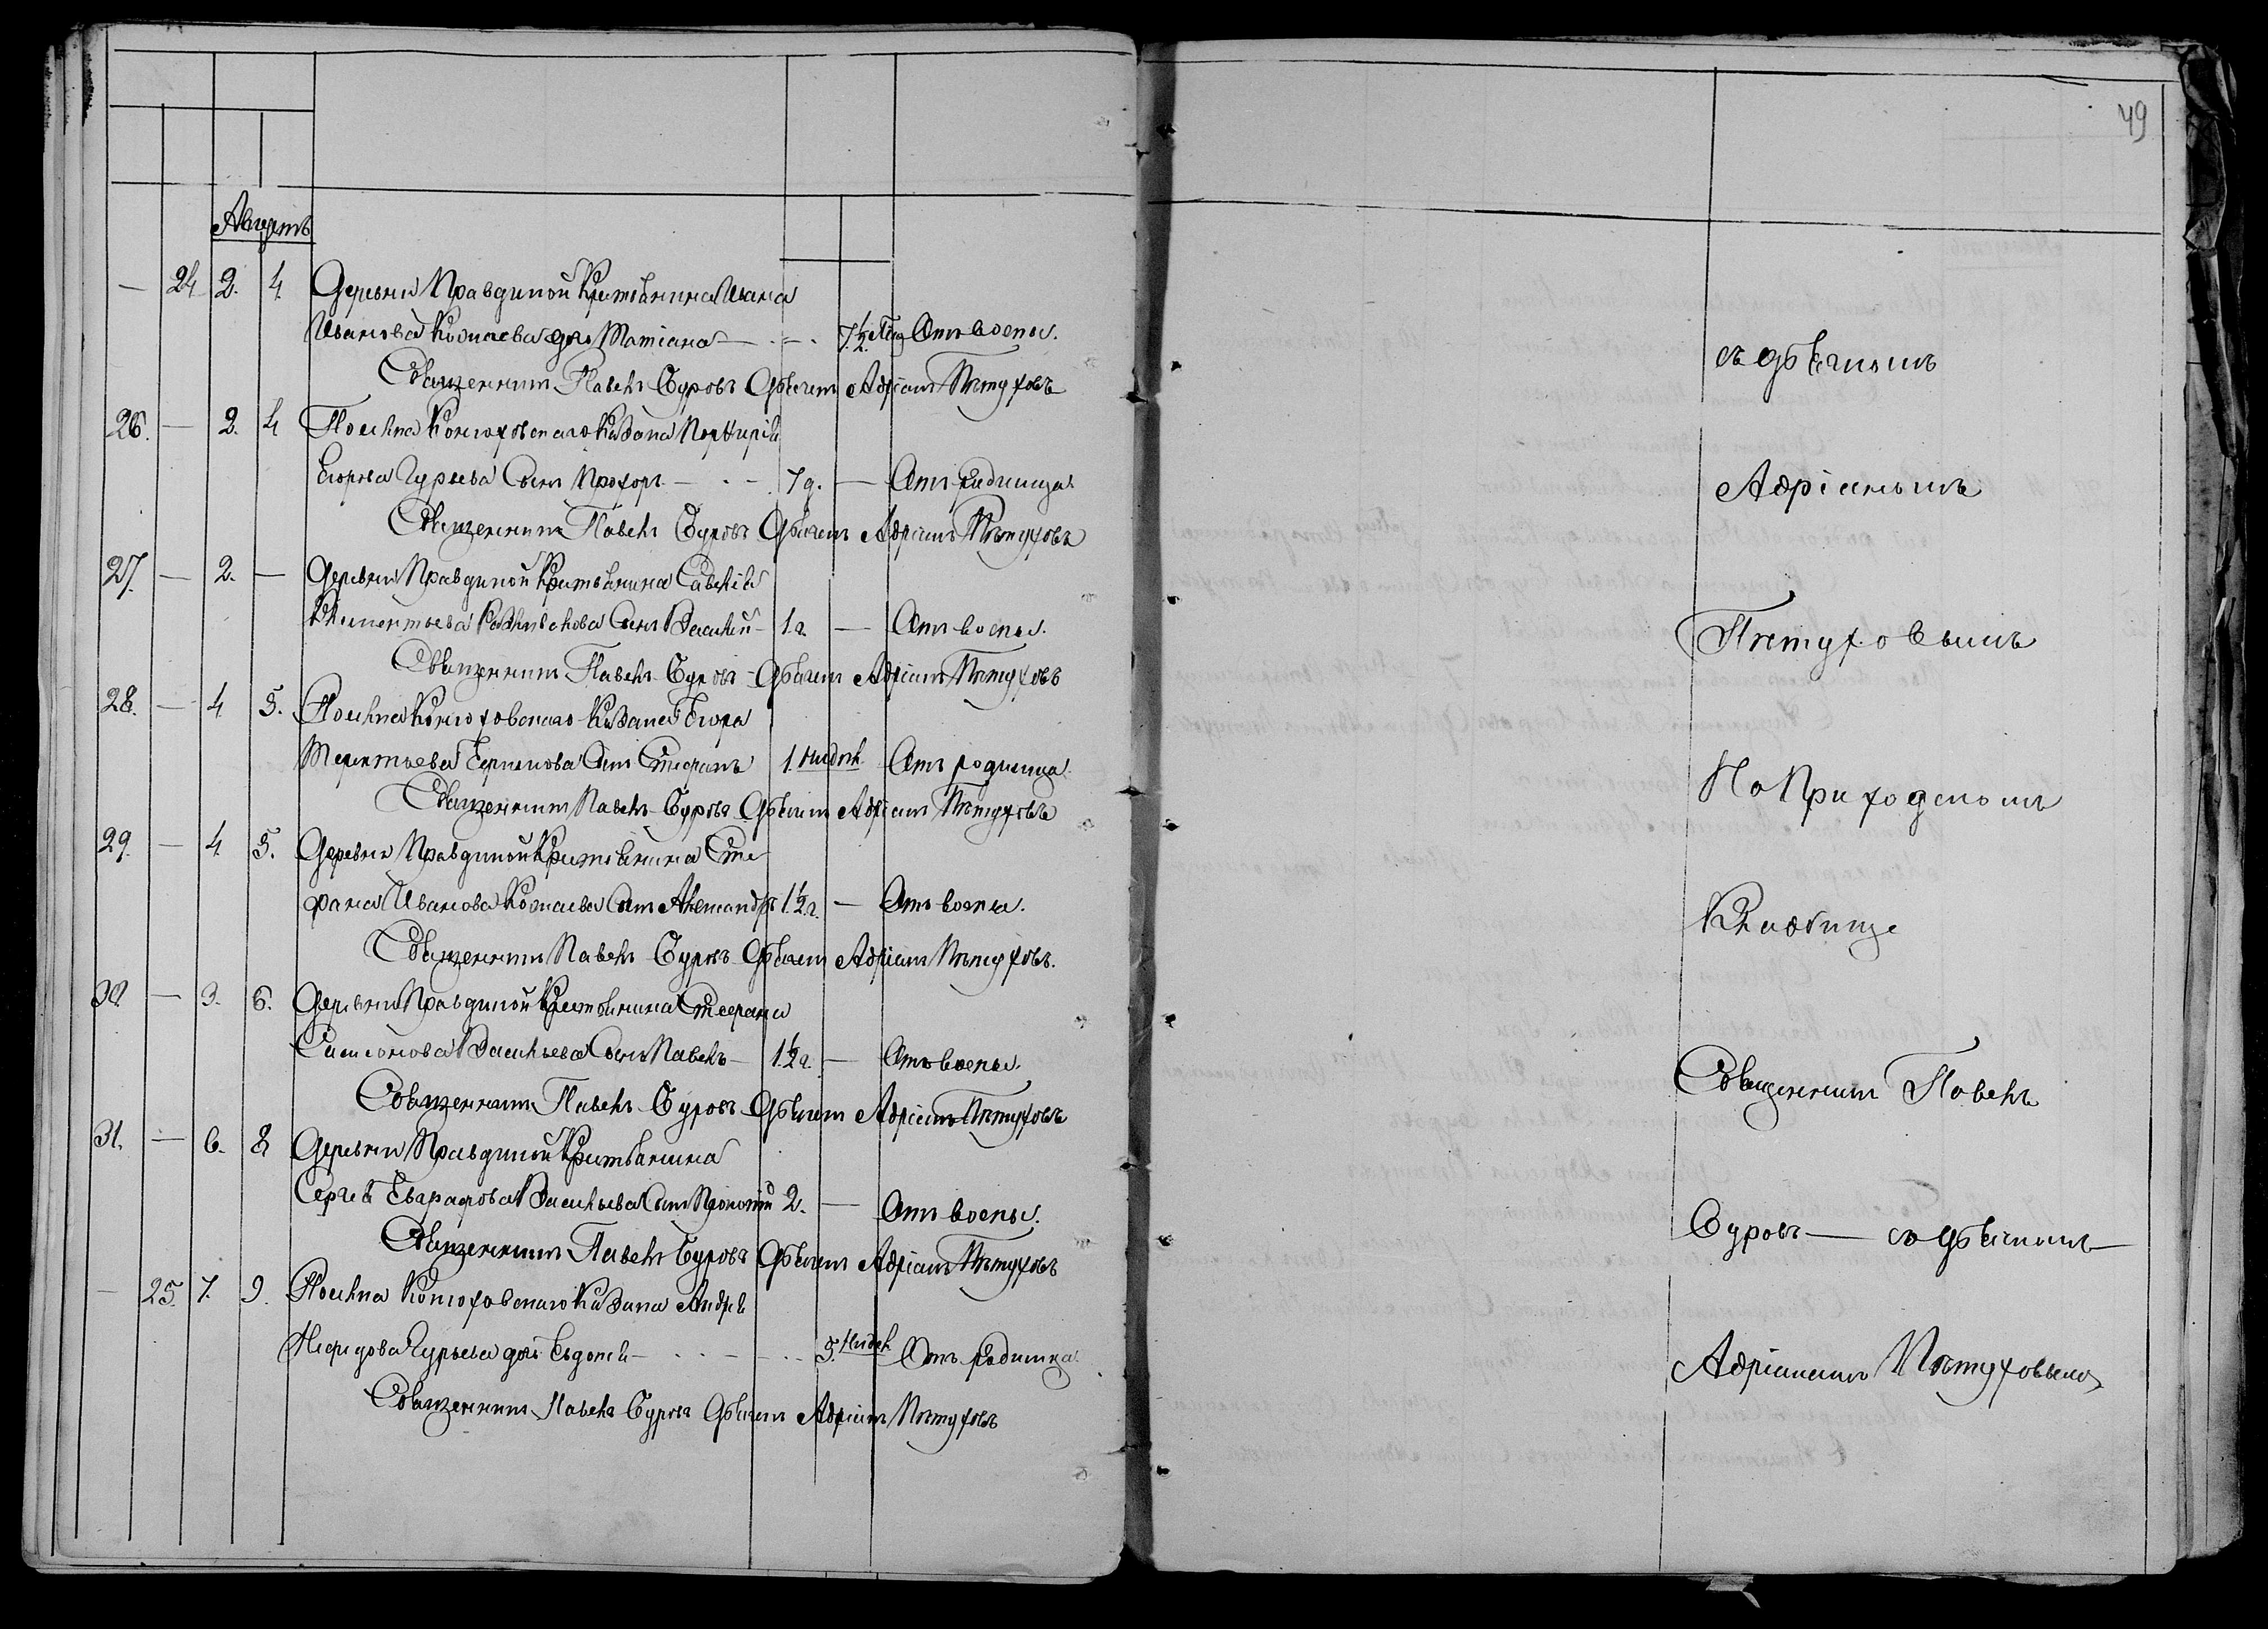 49
Августъ
— 24 2. 4. Деревни Правдиной Крестьянина Ивана
Иванова дочь Татіана — 7½ Отъ воспы.
Священникъ Павелъ Буровъ Дьячекъ Адріанъ Пѣтуховъ
26. — 2. 4 Посёлка Конюховскаго Казака Порфирія
Егорова Гурьева Сынъ Прохоръ — 7 д. — Отъ родимца
Священникъ Павелъ Буровъ Дьячекъ Адріанъ Пѣтуховъ
27. — 2. — Деревни Правдиной Крестьянина Савелія
Климентьева Сынъ Василій — 1 г. — Отъ воспы.
Священникъ Павелъ Буровъ Дьячекъ Адріанъ Пѣтуховъ
28. — 4 5. Посёлка Конюховскаго Казака Егора
Терентьева Сынъ Стефанъ 1. недѣл. Отъ родимца
Священникъ Павелъ Буровъ Дьячекъ Адріанъ Пѣтуховъ
29. — 4. 5. Деревни Правдиной Крестьянина Сте-
фана Иванова Сынъ Александръ 1½ г. — Отъ воспы.
Священникъ Павелъ Буровъ Дьячекъ Адріанъ Пѣтуховъ.
30 — 6. Деревни Правдиной Крестьянина Стефана
Симеонова Васильева Сынъ Павелъ — 1½ г. — Отъ воспы.
Священникъ Павелъ Буровъ Дьячекъ Адріанъ Пѣтуховъ
31. — 6. 8 Деревни Правдиной Крестьянина
Сергѣя Васильева Сынъ Прокопій 2. — Отъ воспы.
Священникъ Павелъ Буровъ Дьячекъ Адріанъ Пѣтуховъ
— 25. 7. 9. Посёлка Конюховскаго Казака Андрея
Гурьева дочь — 3. недѣл. Отъ родимца
Священникъ Павелъ Буровъ Дьячекъ Адріанъ Пѣтуховъ
съ дьячкомъ
Адріаномъ
Пѣтуховымъ
На Приходскомъ
Кладбище
Священникъ Павелъ
Буровъ — съ дьячкомъ —
Адріаномъ Пѣтуховымъ